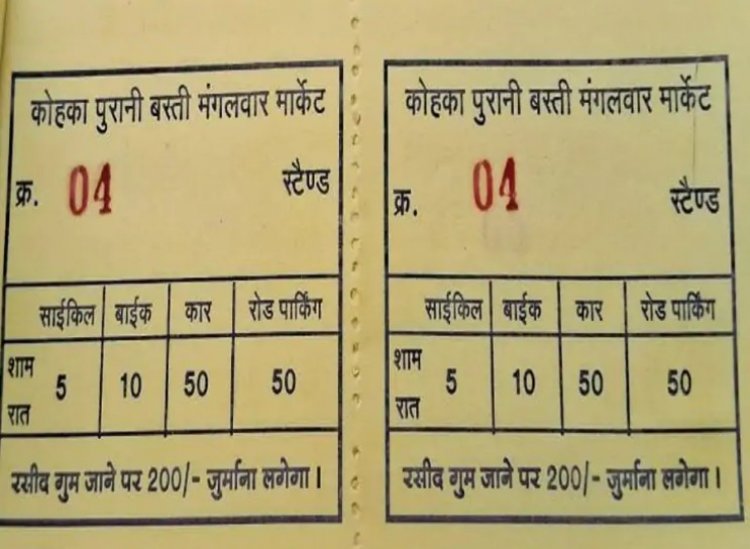 कोहका पुरानी बस्ती मंगलवार मार्केट
क्र. 04 स्टैण्ड
साईकिल बाईक कार रोड पार्किंग
शाम
5 10 50 50
रात
रसीद गुम जाने पर 200/- जुर्माना लगेगा।
कोहका पुरानी बस्ती मंगलवार मार्केट
क्र. 04 स्टैण्ड
साईकिल बाईक कार रोड पार्किंग
शाम
5 10 50 50
रात
रसीद गुम जाने पर 200/- जुर्माना लगेगा।